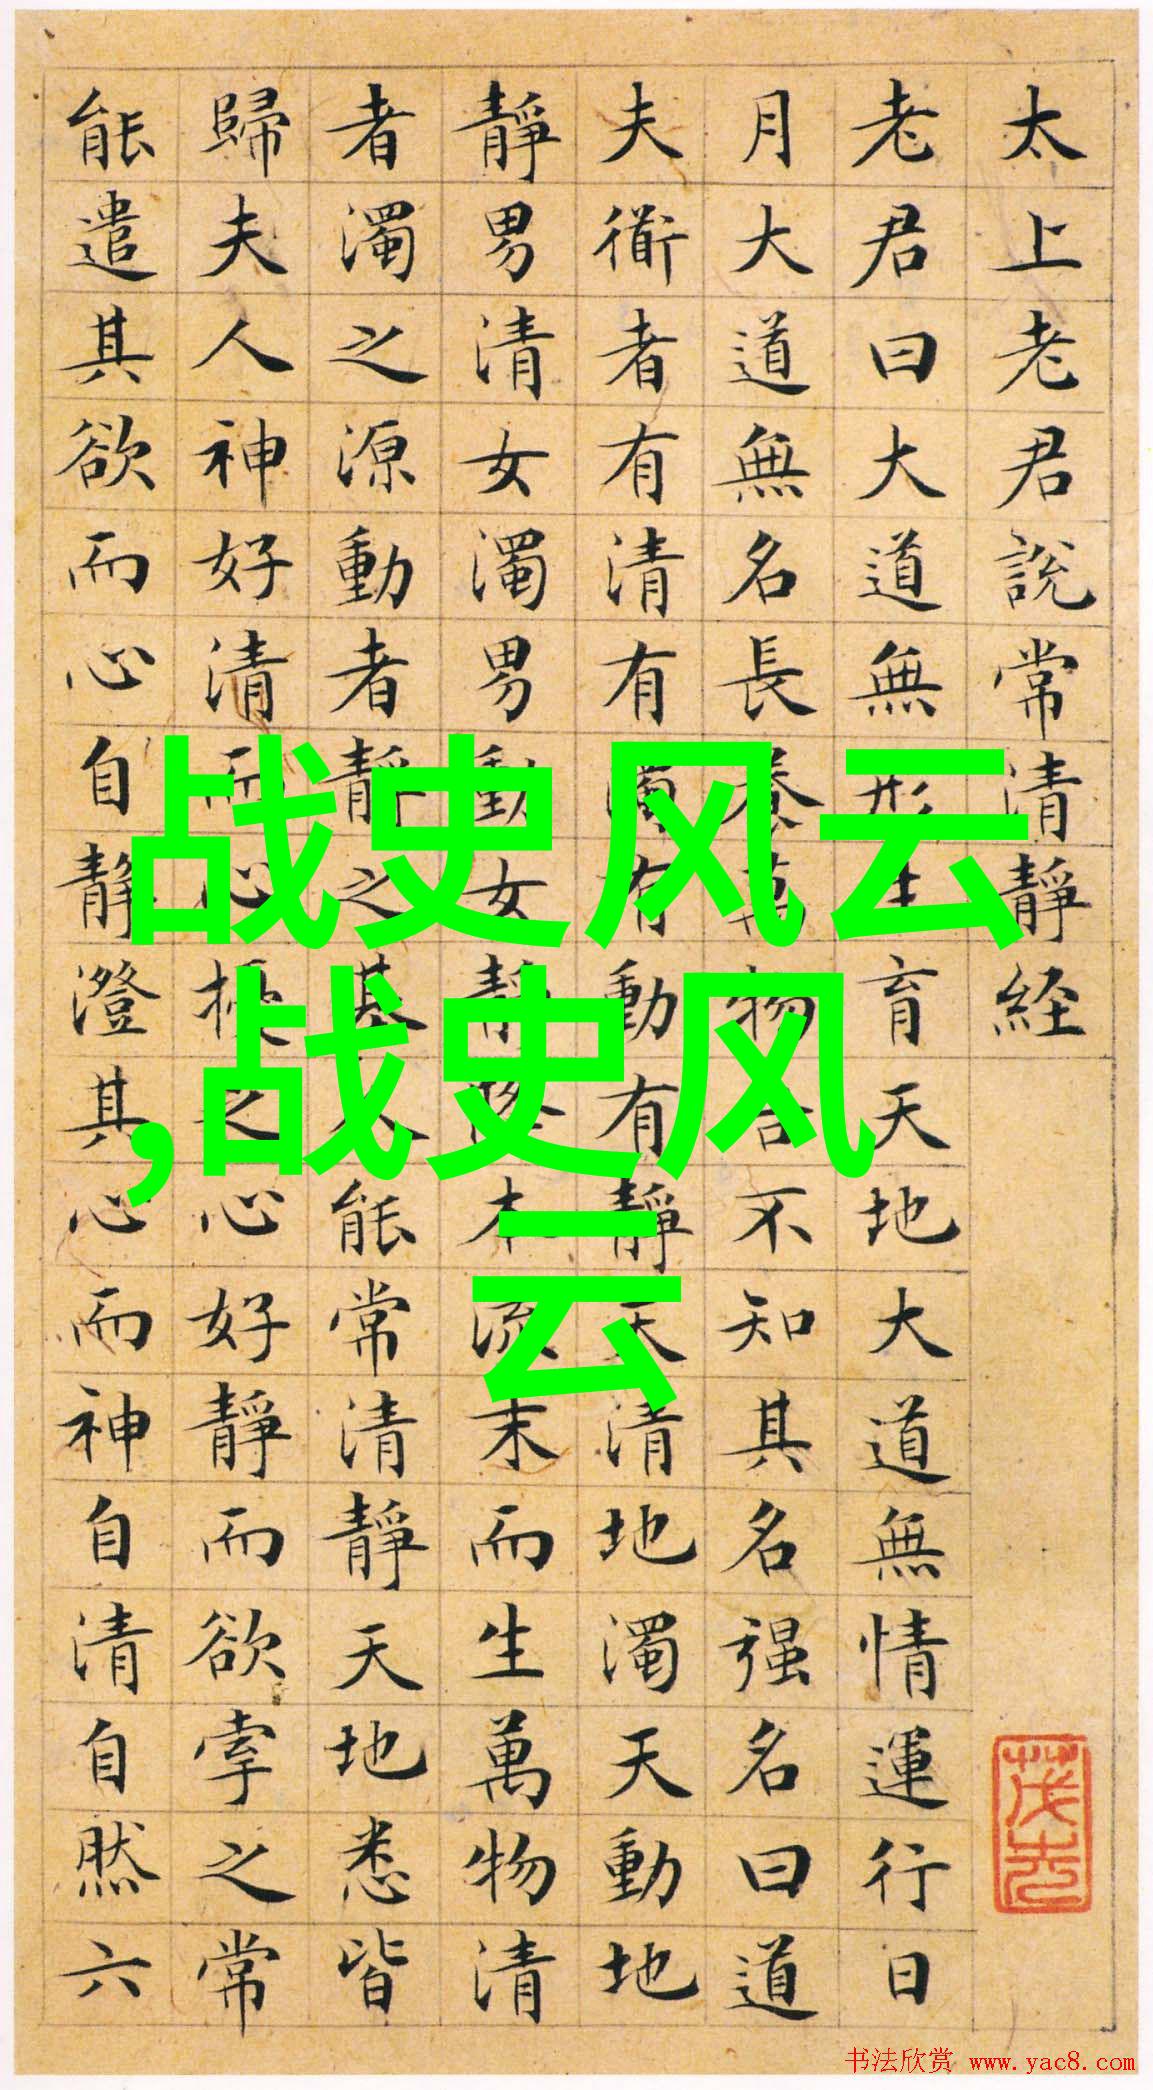 太上老君說常清靜経
老君曰大道無形生育天地大道無情運行日
月大道無名長養萬物吾不知其名强名曰道
夫衜者有清有濁有動有靜天清地濁天動地
靜男清女濁男動女靜降本流末而生萬物清
者濁之源動者靜之基人能常清靜天地悉皆
歸夫人神好清而心擾之心好靜而欲牽之常
能遣其欲而心自静澄其心而神自清自然六
战史风云
,战史风
云
书法欣赏 www.yac8.com